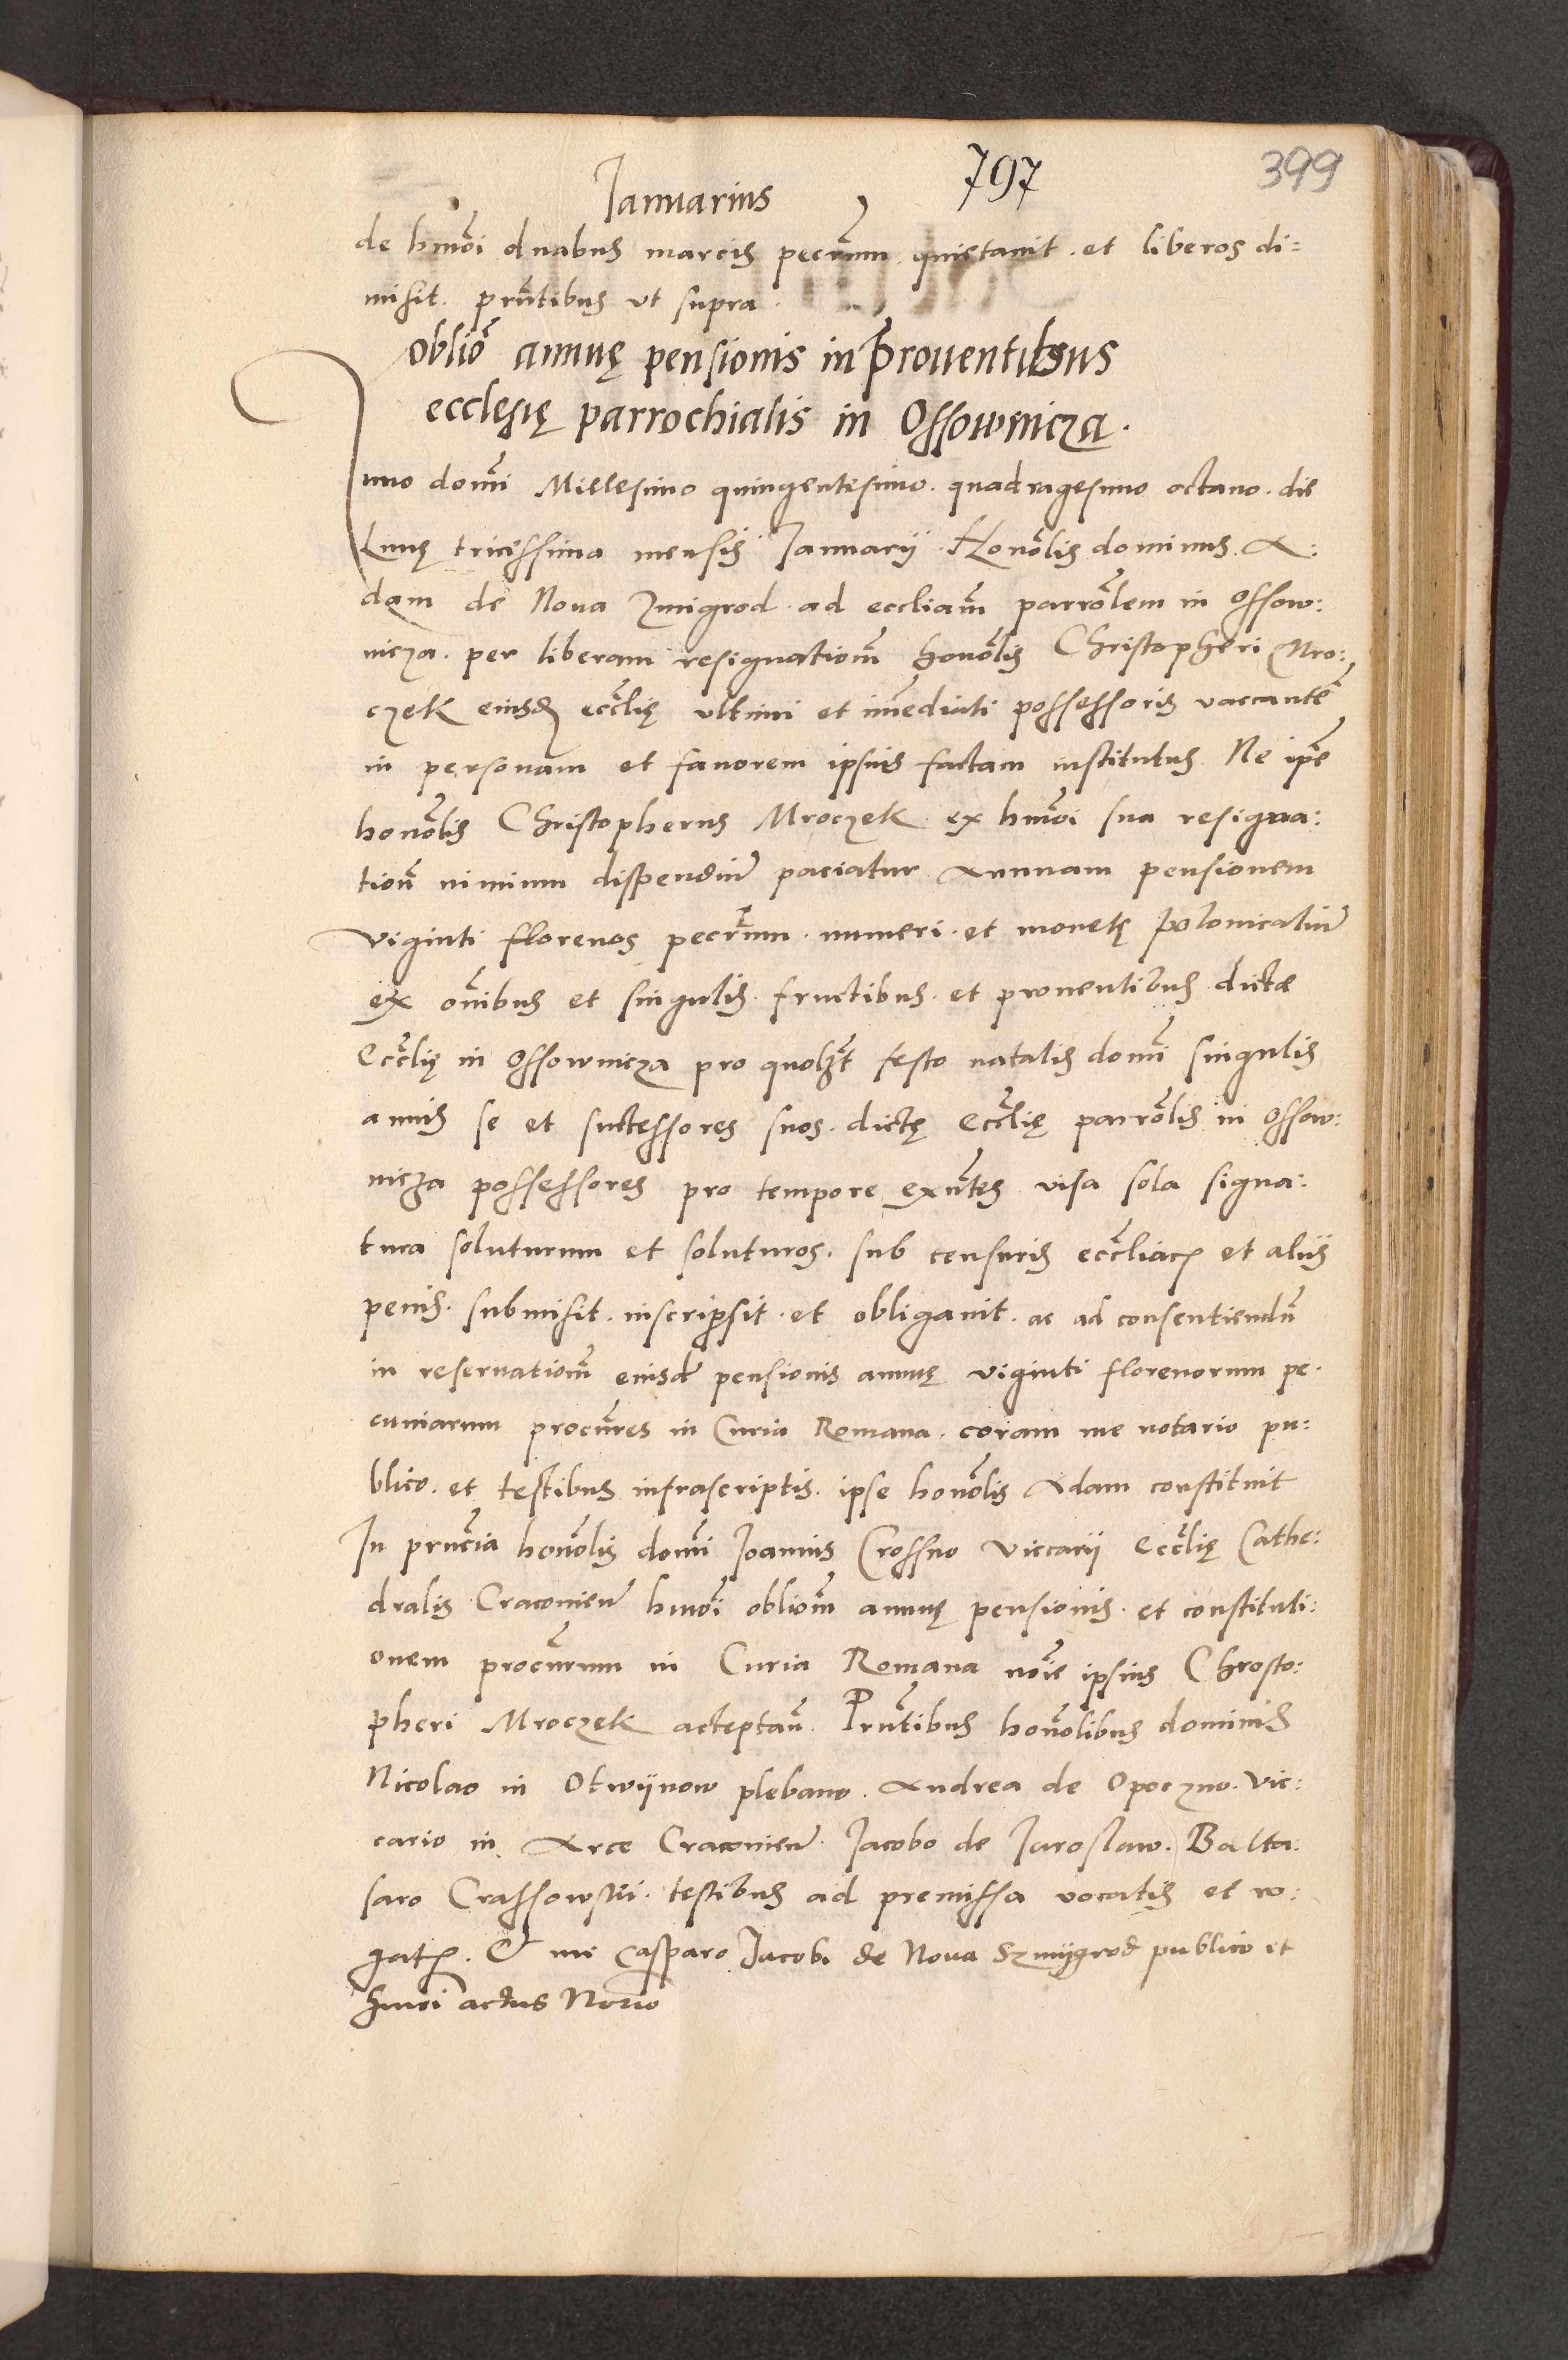 797
399
Januarius
de hmoi duabus marcis pecrum quietauit . et liberos di=
misit . pntibus vt supra .
oblio annuę pensionis in prouentibus
ecclesię parrochialis in Ossownicza .
Anno domi Millesimo quingentesimo . quadragesimo octauo . die
Lunę tricessima mensis Januarij . Honolis dominus . A:
dam de Noua Zmigrod . ad eccliam parrolem in Ossow:
nicza . per liberam resignationem honolis Christopheri Mro:
czek eiusd ecclię vltimi et immediati possessoris vaccante
in personam et fauorem ipsius factam institutus . Ne ipse
honolis Christopherus Mroczek ex hmoi sua resigna:
tione nimium dispendium paciatur Annuam pensionem
viginti florenos pecrum . numeri . et monetę polonicalium
ex omibus et singulis . fructibus . et prouentibus dictæ
Ecclię in Ossownicza pro quolzt festo natalis domi singulis
annis se et successores suos . dictę Ecclię parrolis in Ossow:
nicza possessores pro tempore exntes visa sola signa:
tura soluturum et soluturos . sub censuris eccliacis et alijs
penis . submisit . inscripsit . et obligauit . ac ad consentiendum
in reseruationem eiusdem pensionis annuę viginti florenorum pe .
cuniarum procures in Curia Romana . coram me notario pu:
blico . et testibus infrascriptis . ipse honolis Adam constituit
In prncia honolis domi Joannis Crossno viccarij Ecclię Cathe:
dralis Cracouien hmoi obliom annuę pensionis . et constituti:
onem procurum in Curia Romana noie ipsius Chrosto:
pheri Mroczek acceptan . Prntibus honolibus dominis
Nicolao in Otwijnow plebano . Andrea de Opoczno . vic:
cario in Arce Cracouien Jacobo de Jaroslaw . Balta:
saro Crassowski . testibus ad premissa vocatis et ro:
gatis . Et me Casparo Jacobi de Noua Szmijgrod publico et
hmoi actus Norio